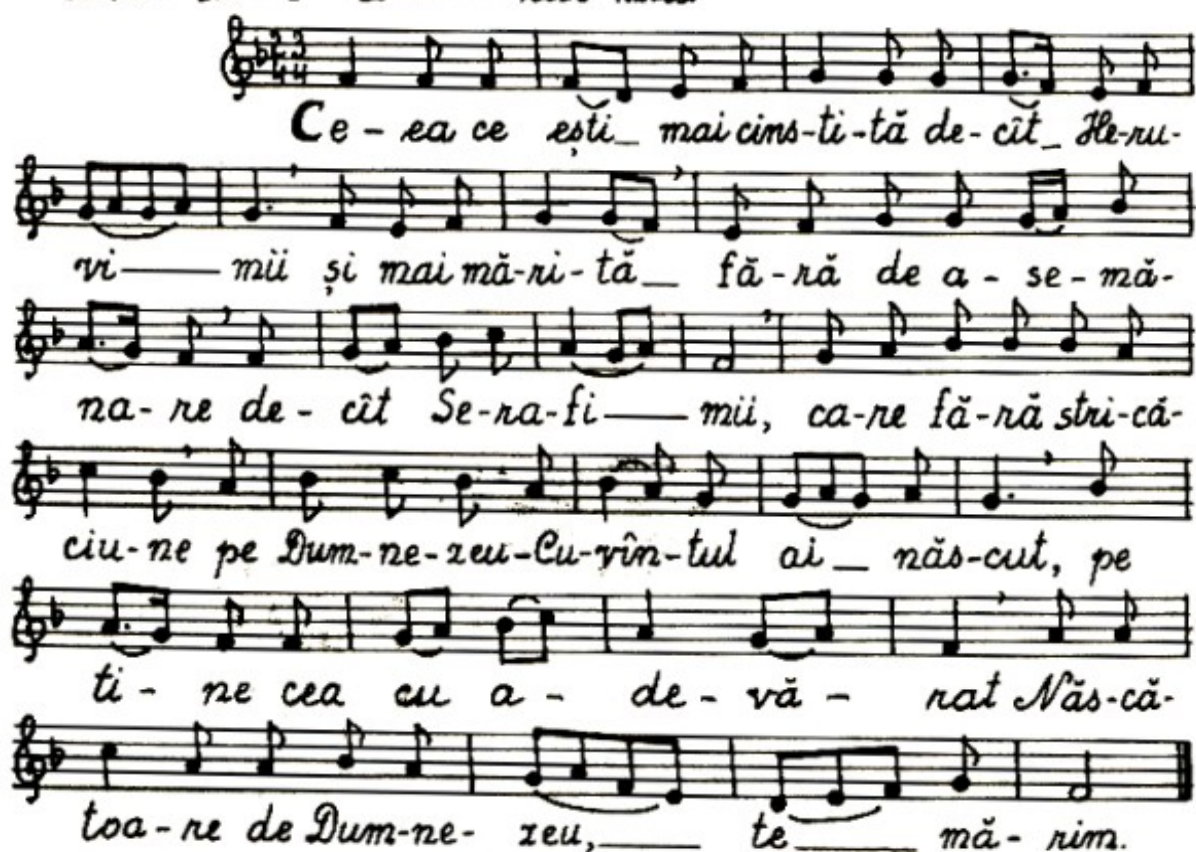 Ce-ea ce ești_ mai cins-ti-tă de-cît_ He-ru-
vi— mii și mai mă-ri-tă_ fă-ră de a-se-mă-
na-re de-cît Se-ra-fi— mii, ca-re fă-ră stri-că-
ciu-ne pe Dum-ne-zeu-Cu-vîn-tul ai_ năs-cut, pe
ti-ne cea cu a-de-vă-rat Năs-că-
toa-re de Dum-ne-zeu,_ te_ mă-rim.